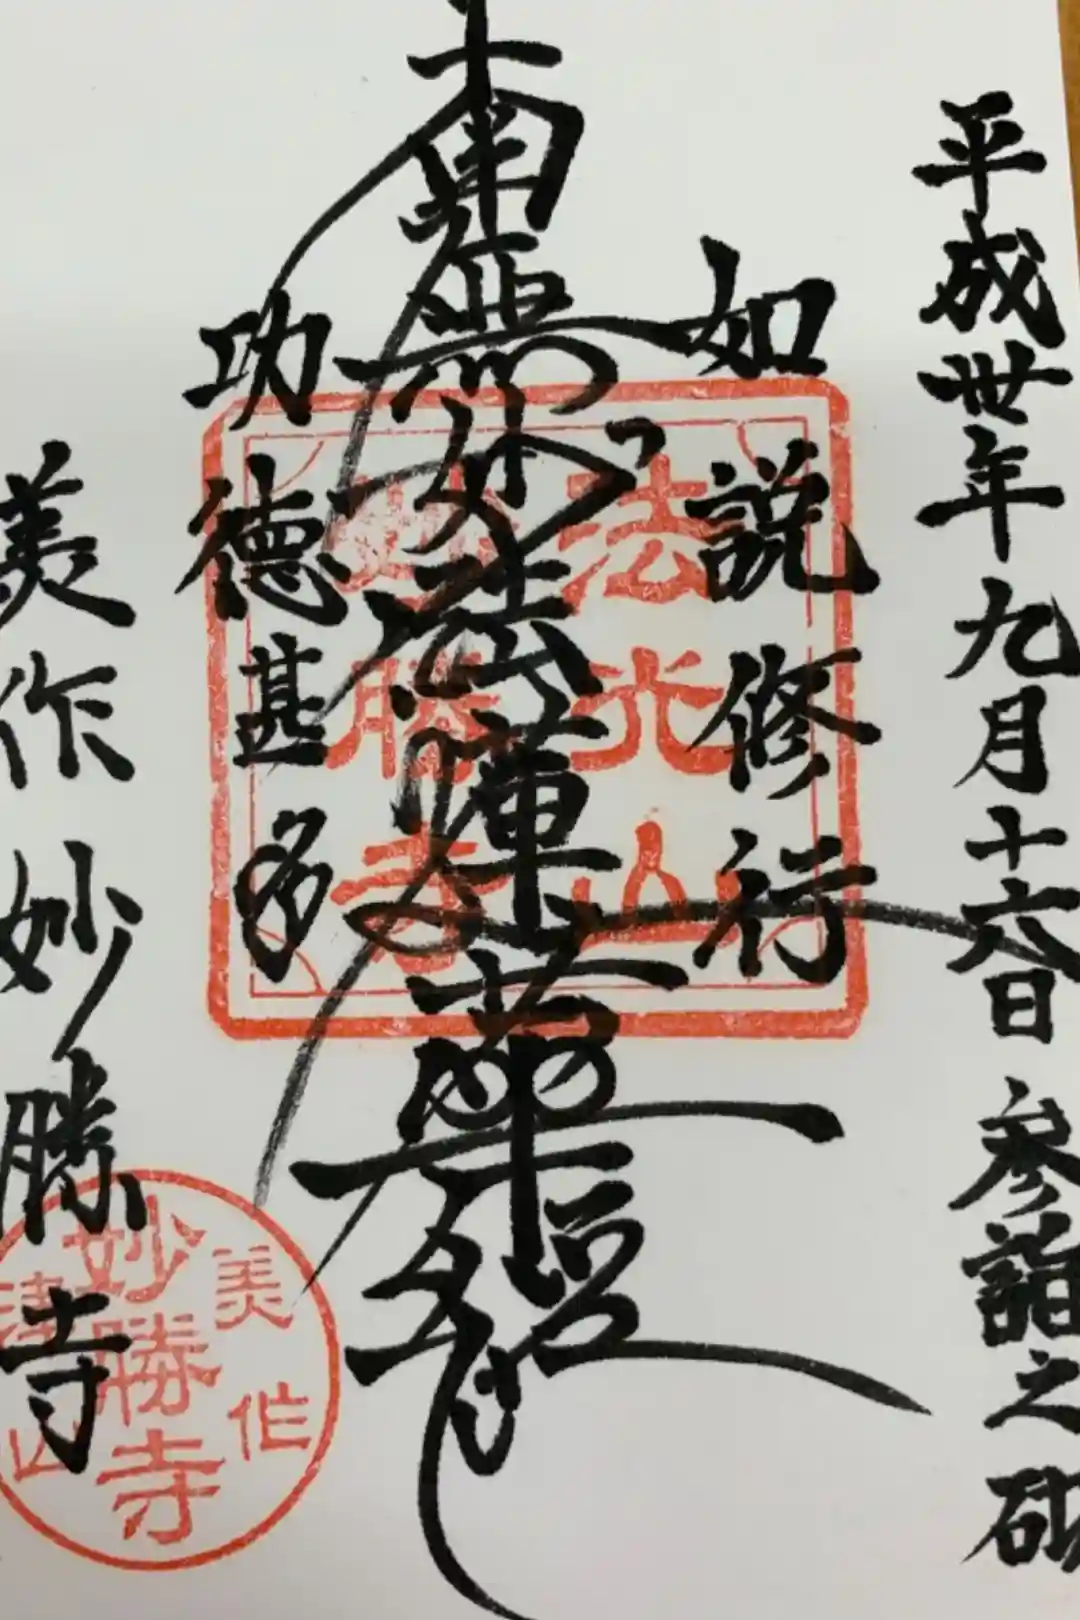 平成丗年九月十六日 参詣之砌
如説修行
南無妙法蓮華経
功徳甚多
美作 妙勝寺
法光山
妙勝寺
美作
妙勝寺